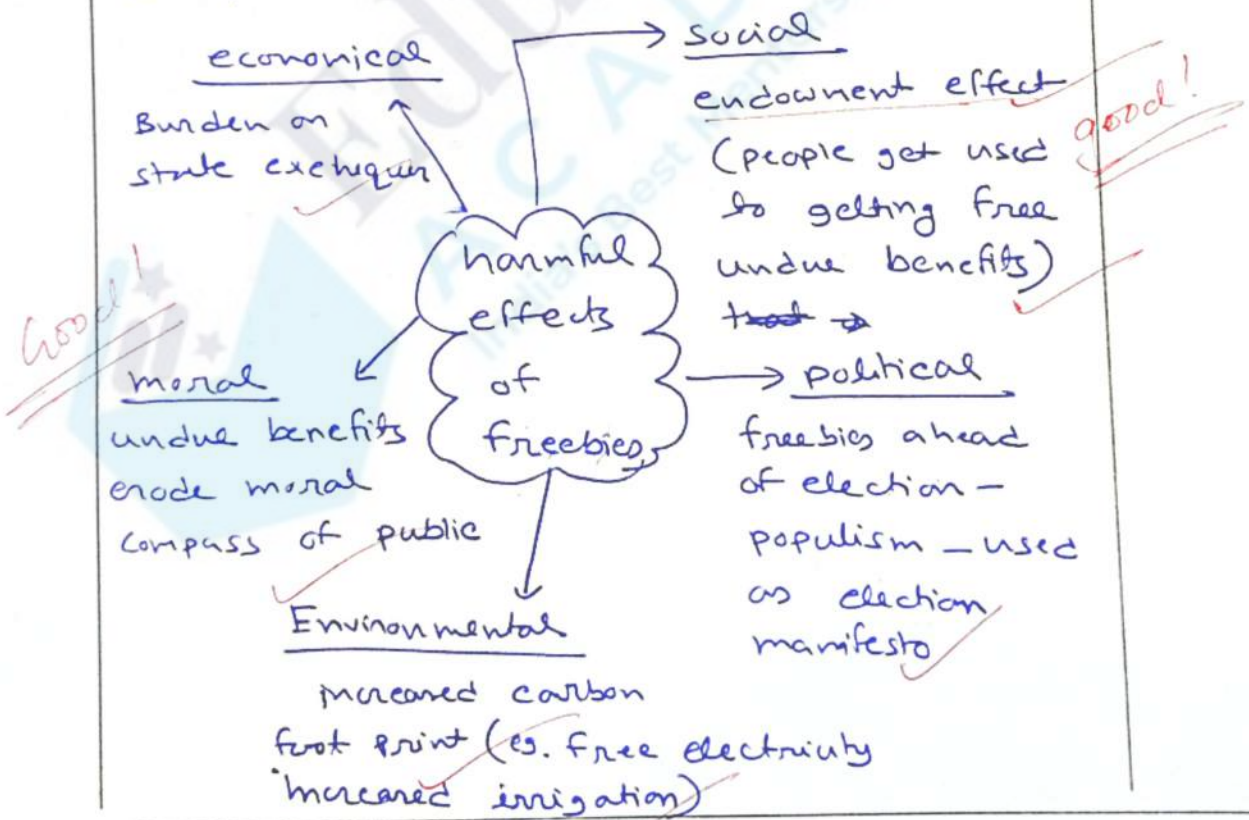 economical
Burden on
state exchequer
social
endowment effect
(people get used
to getting free
undue benefits)
good!
Good!
harmful
effects
of
freebies
moral
undue benefits
erode moral
compass of public
political
freebies ahead
of election -
populism - used
as election
manifesto
Environmental
increased carbon
foot print (eg. free electricity
increased irrigation)